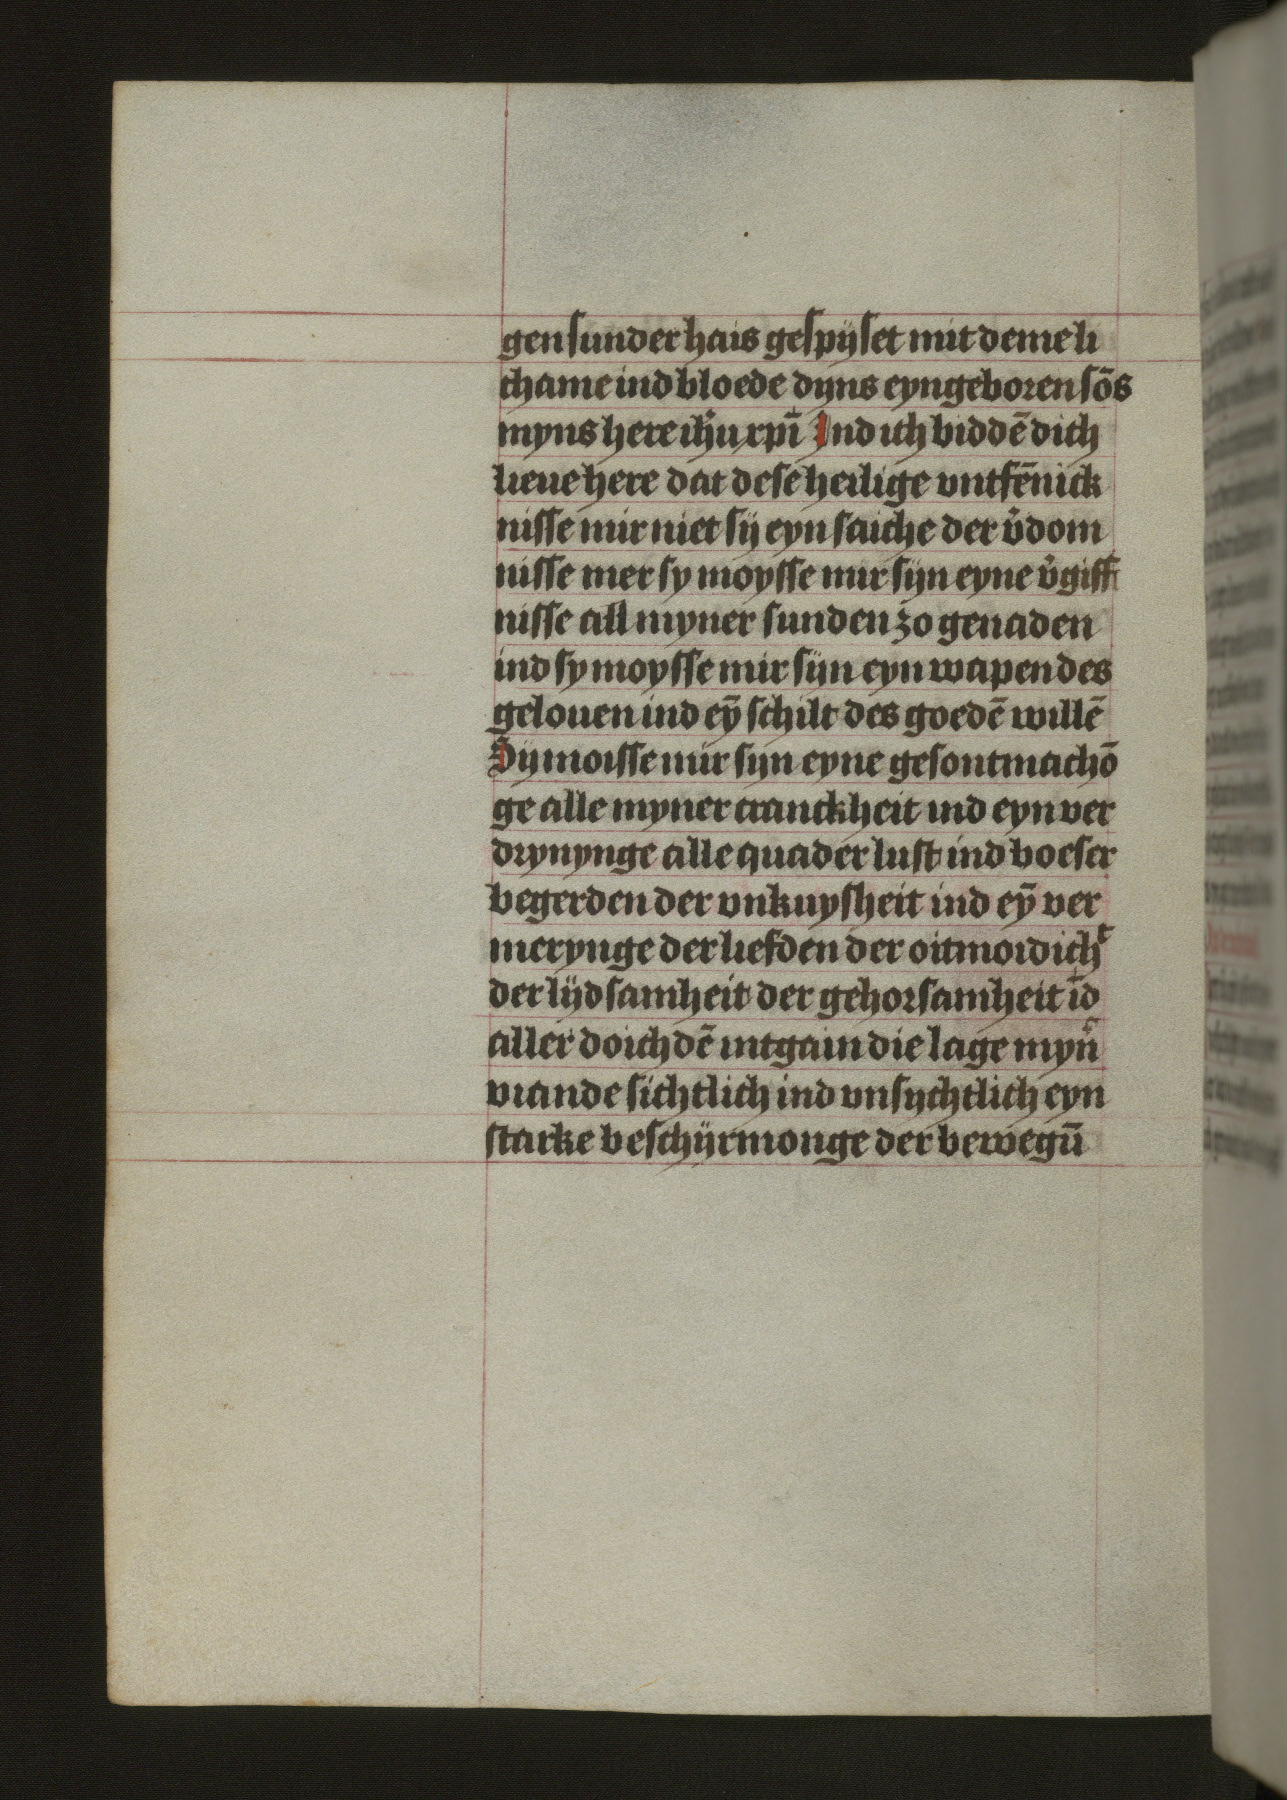 gen sunder hais gespijset mit deme li
chame ind bloede dyns eyngeboren sōs
myns here ihū xpī Ind ich biddē dich
lieue here dat dese heilige vntfēnick
nisse mir niet sij eyn saiche der v̄dom
nisse mer sy moysse mir sijn eyne v̄giff
nisse all myner sunden zo genaden
ind sy moysse mir sijn eyn wapen des
gelouen ind eȳ schilt des goedē willē
Sij moisse mir sijn eyne gesontmachō
ge alle myner cranckheit ind eyn ver
drynynge alle quader lust ind boeser
begerden der vnkuysheit ind eȳ ver
merynge der liefden der oitmoidich^t
der lijdsamheit der gehorsamheit īd
aller doichdē intgain die lage myn̄
viande sichtlich ind vnsychtlich eyn
starke beschijrmonge der bewegū